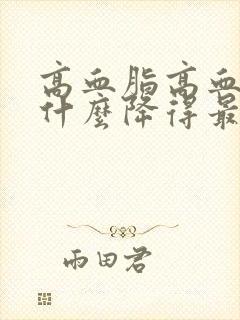 高血脂高血
什麼降得最
雨田君